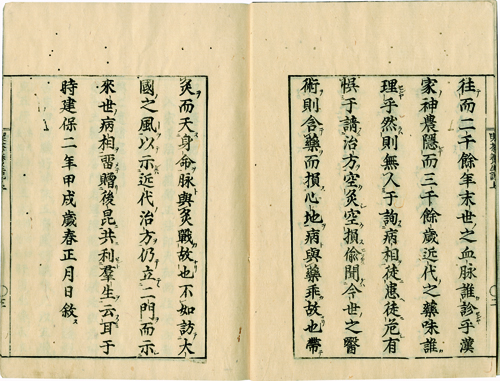 往而二千餘年末世之血脉誰診乎漢
家神農隱而三千餘歲近代之藥味誰
理乎然則無人于詢病相徒患徒危有
悞于請治方空灸空損偷聞今世之醫
術則含藥而損心地病與藥乖故也帶
灸而夭身命脉與灸戰故也不如訪大
國之風以示近代治方仍立二門而示
來世病相畱贈後昆共利羣生云耳于
時建保二年甲戌歲春正月日敘